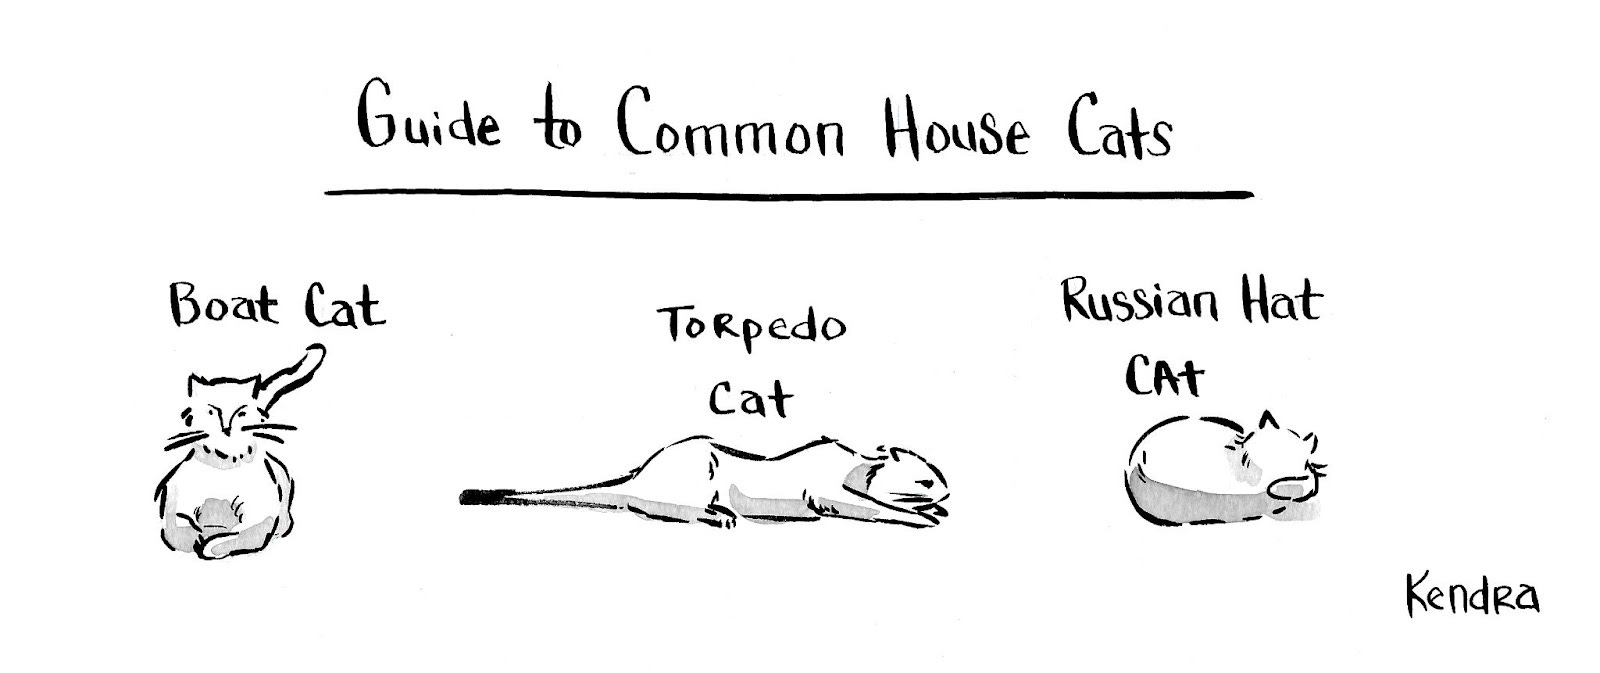 Guide to Common House Cats
Boat Cat
Torpedo
Cat
Russian Hat
CAt
Kendra